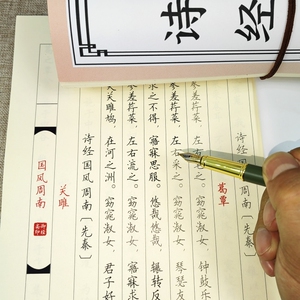 诗经
诗经国风周南〔先秦〕
葛覃
参差荇菜，左
钟鼓乐
参差荇菜，左右采之。窈窕淑女，琴瑟友
求之不得，寤寐思服。悠哉悠哉，辗转反
参差荇菜，左右流之。窈窕淑女，寤寐求
关雎鸠，在河之洲。窈窕淑女，君子好
诗经国风周南〔先秦〕
关雎
国风周南